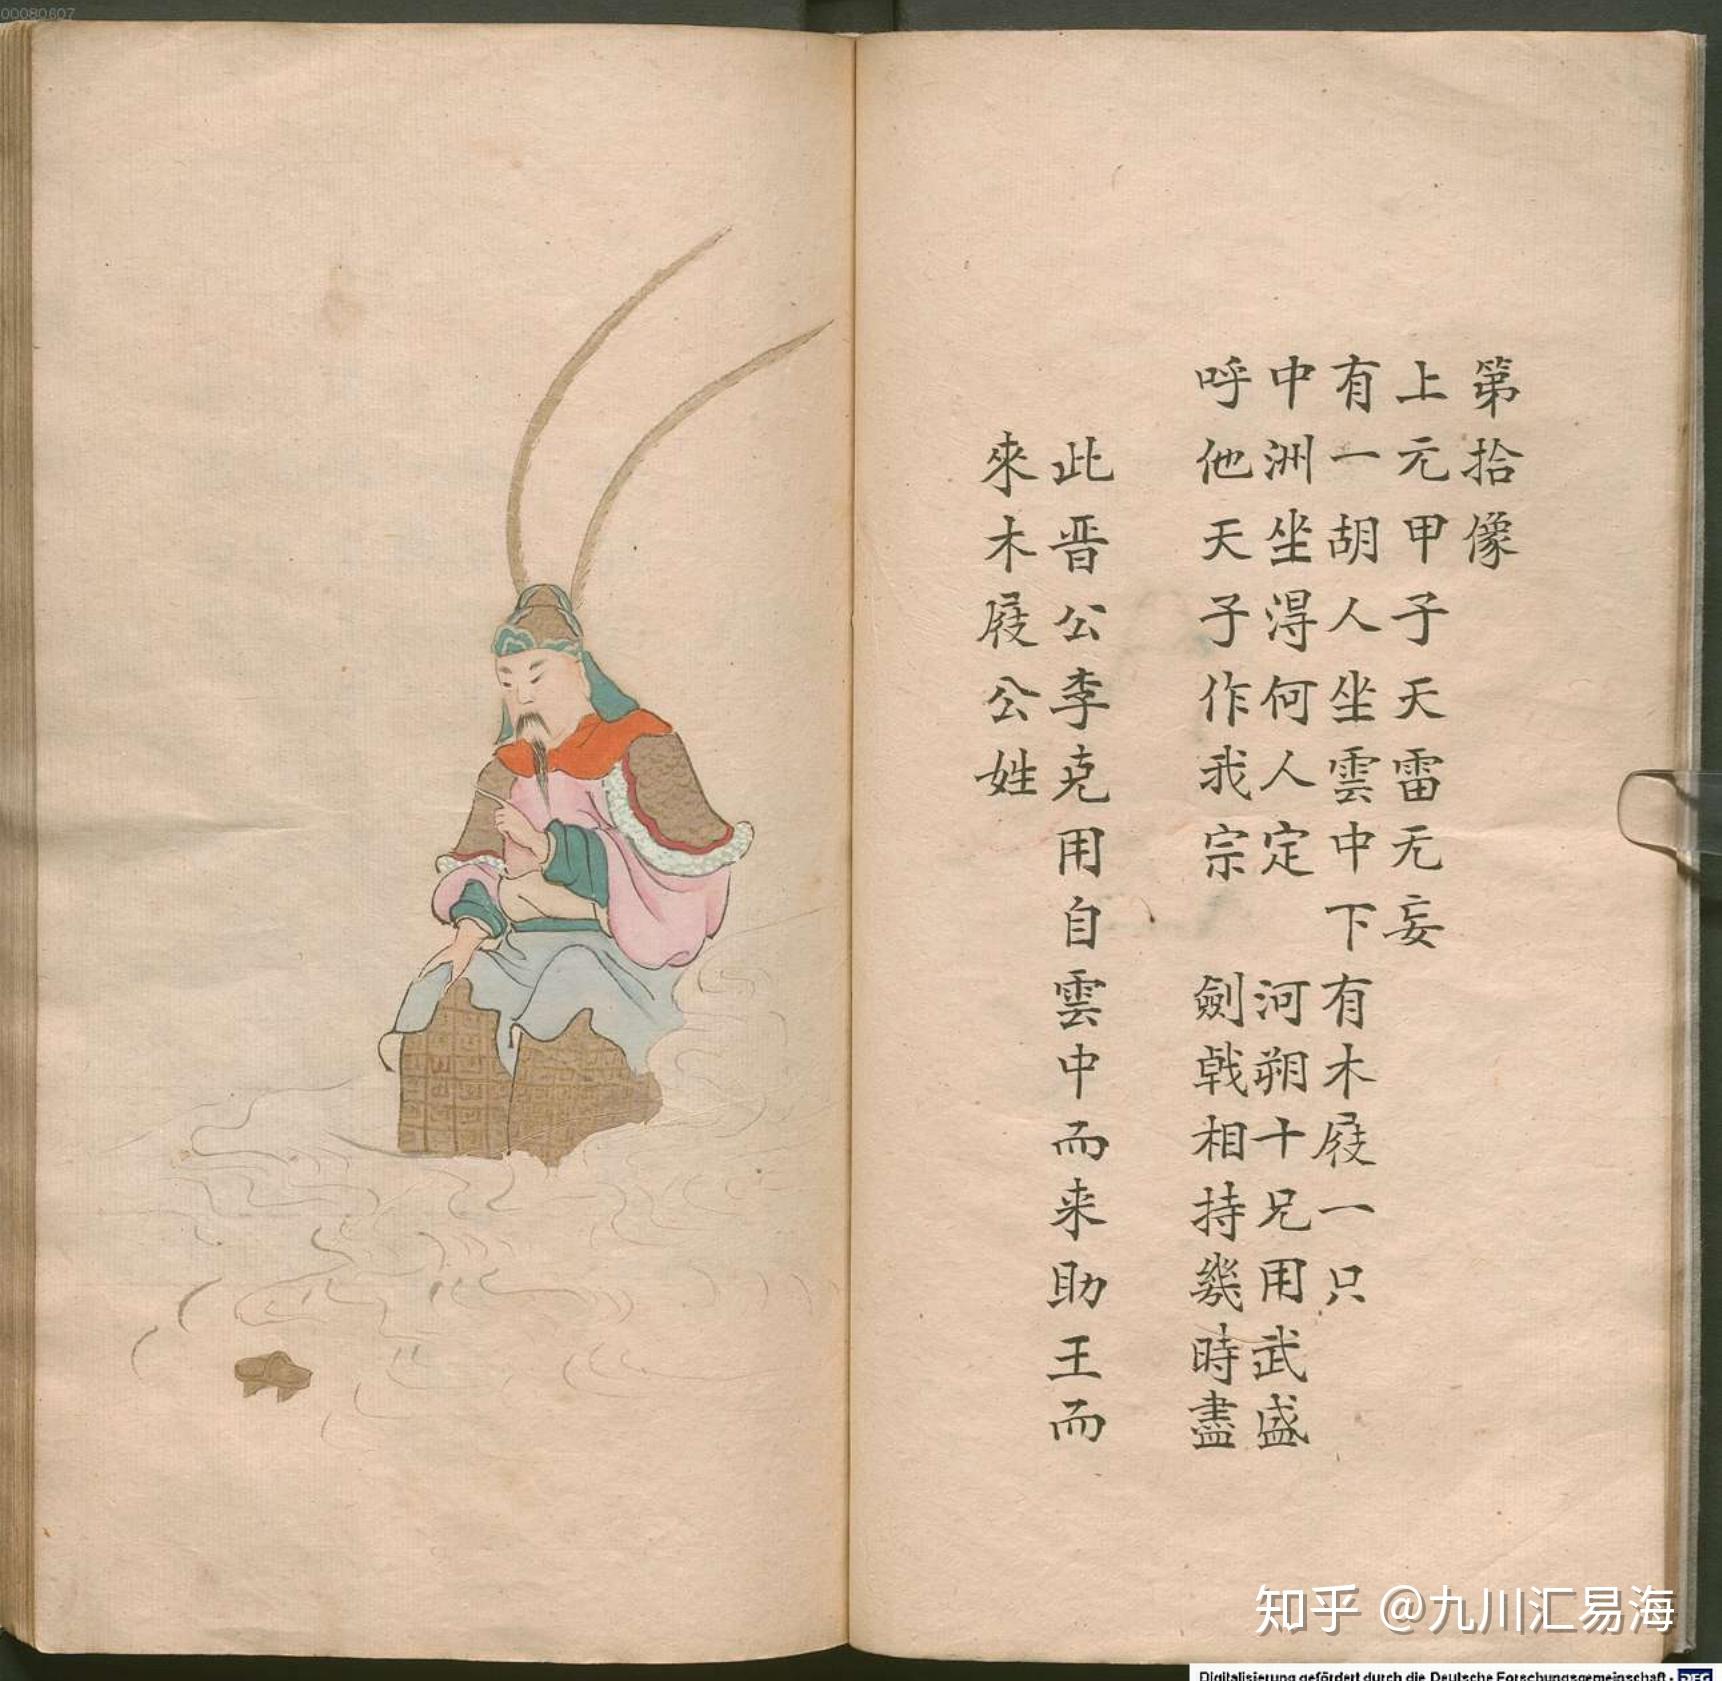 00080607
第拾像
上元甲子天雷无妄
有一胡人坐雲中下有木屐一只
中洲坐淂何人定　河朔十兄用武盛
呼他天子作我宗　劍戟相持幾時盡
此晋公李克用自雲中而来助王而
來木屐公姓
知乎 @九川汇易海
Digitalisierung gefördert durch die Deutsche Forschungsgemeinschaft - DFG